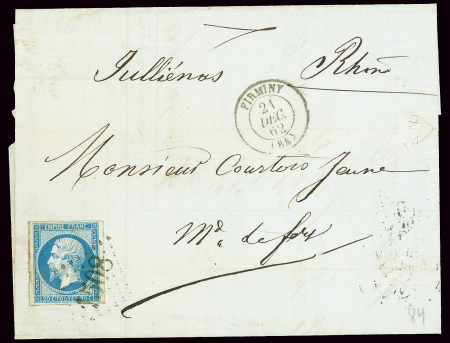 Julliénas Rhône
FIRMINY
21
DEC.
62
(84)
Monsieur Courtois Jeune
Md. de fer
EMPIRE FRANC
20 C POSTES 20 C
84